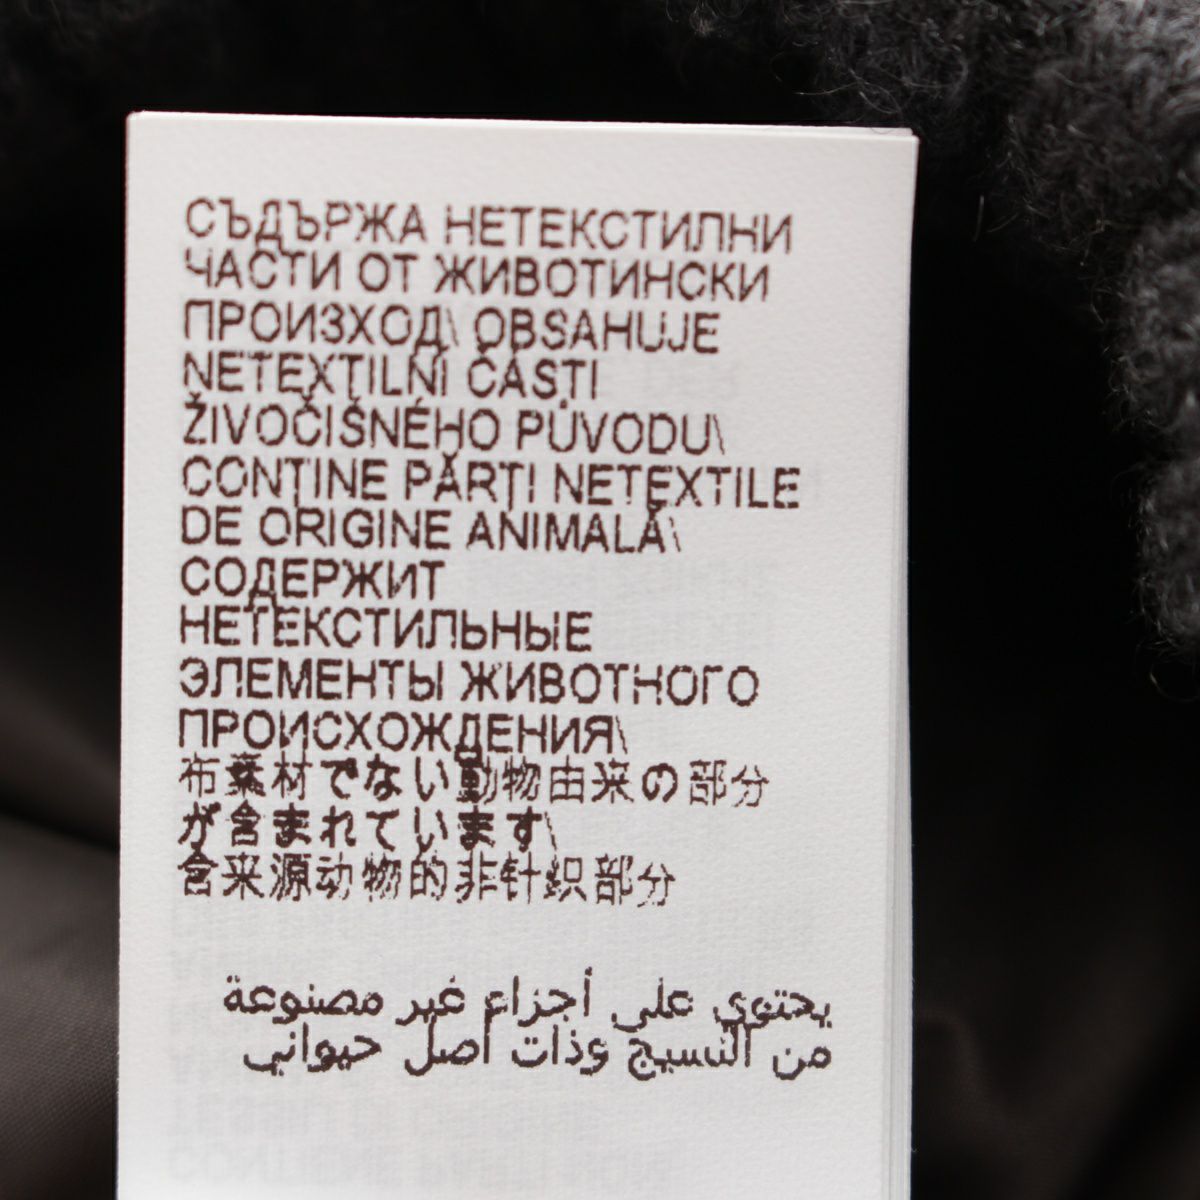 СЪДЪРЖА НЕТЕКСТИЛНИ
ЧАСТИ ОТ ЖИВОТИНСКИ
ПРОИЗХОД\ OBSAHUJE
NETEXTILNÍ ČÁSTI
ŽIVOČIŠNÉHO PŮVODU\
CONȚINE PĂRȚI NETEXTILE
DE ORIGINE ANIMALĂ\
СОДЕРЖИТ
НЕТЕКСТИЛЬНЫЕ
ЭЛЕМЕНТЫ ЖИВОТНОГО
ПРОИСХОЖДЕНИЯ\
布葉材でない動物由来の部分
が含まれています\
含来源动物的非针织部分
يحتوي على أجزاء غير مصنوعة
من النسيج وذات أصل حيواني